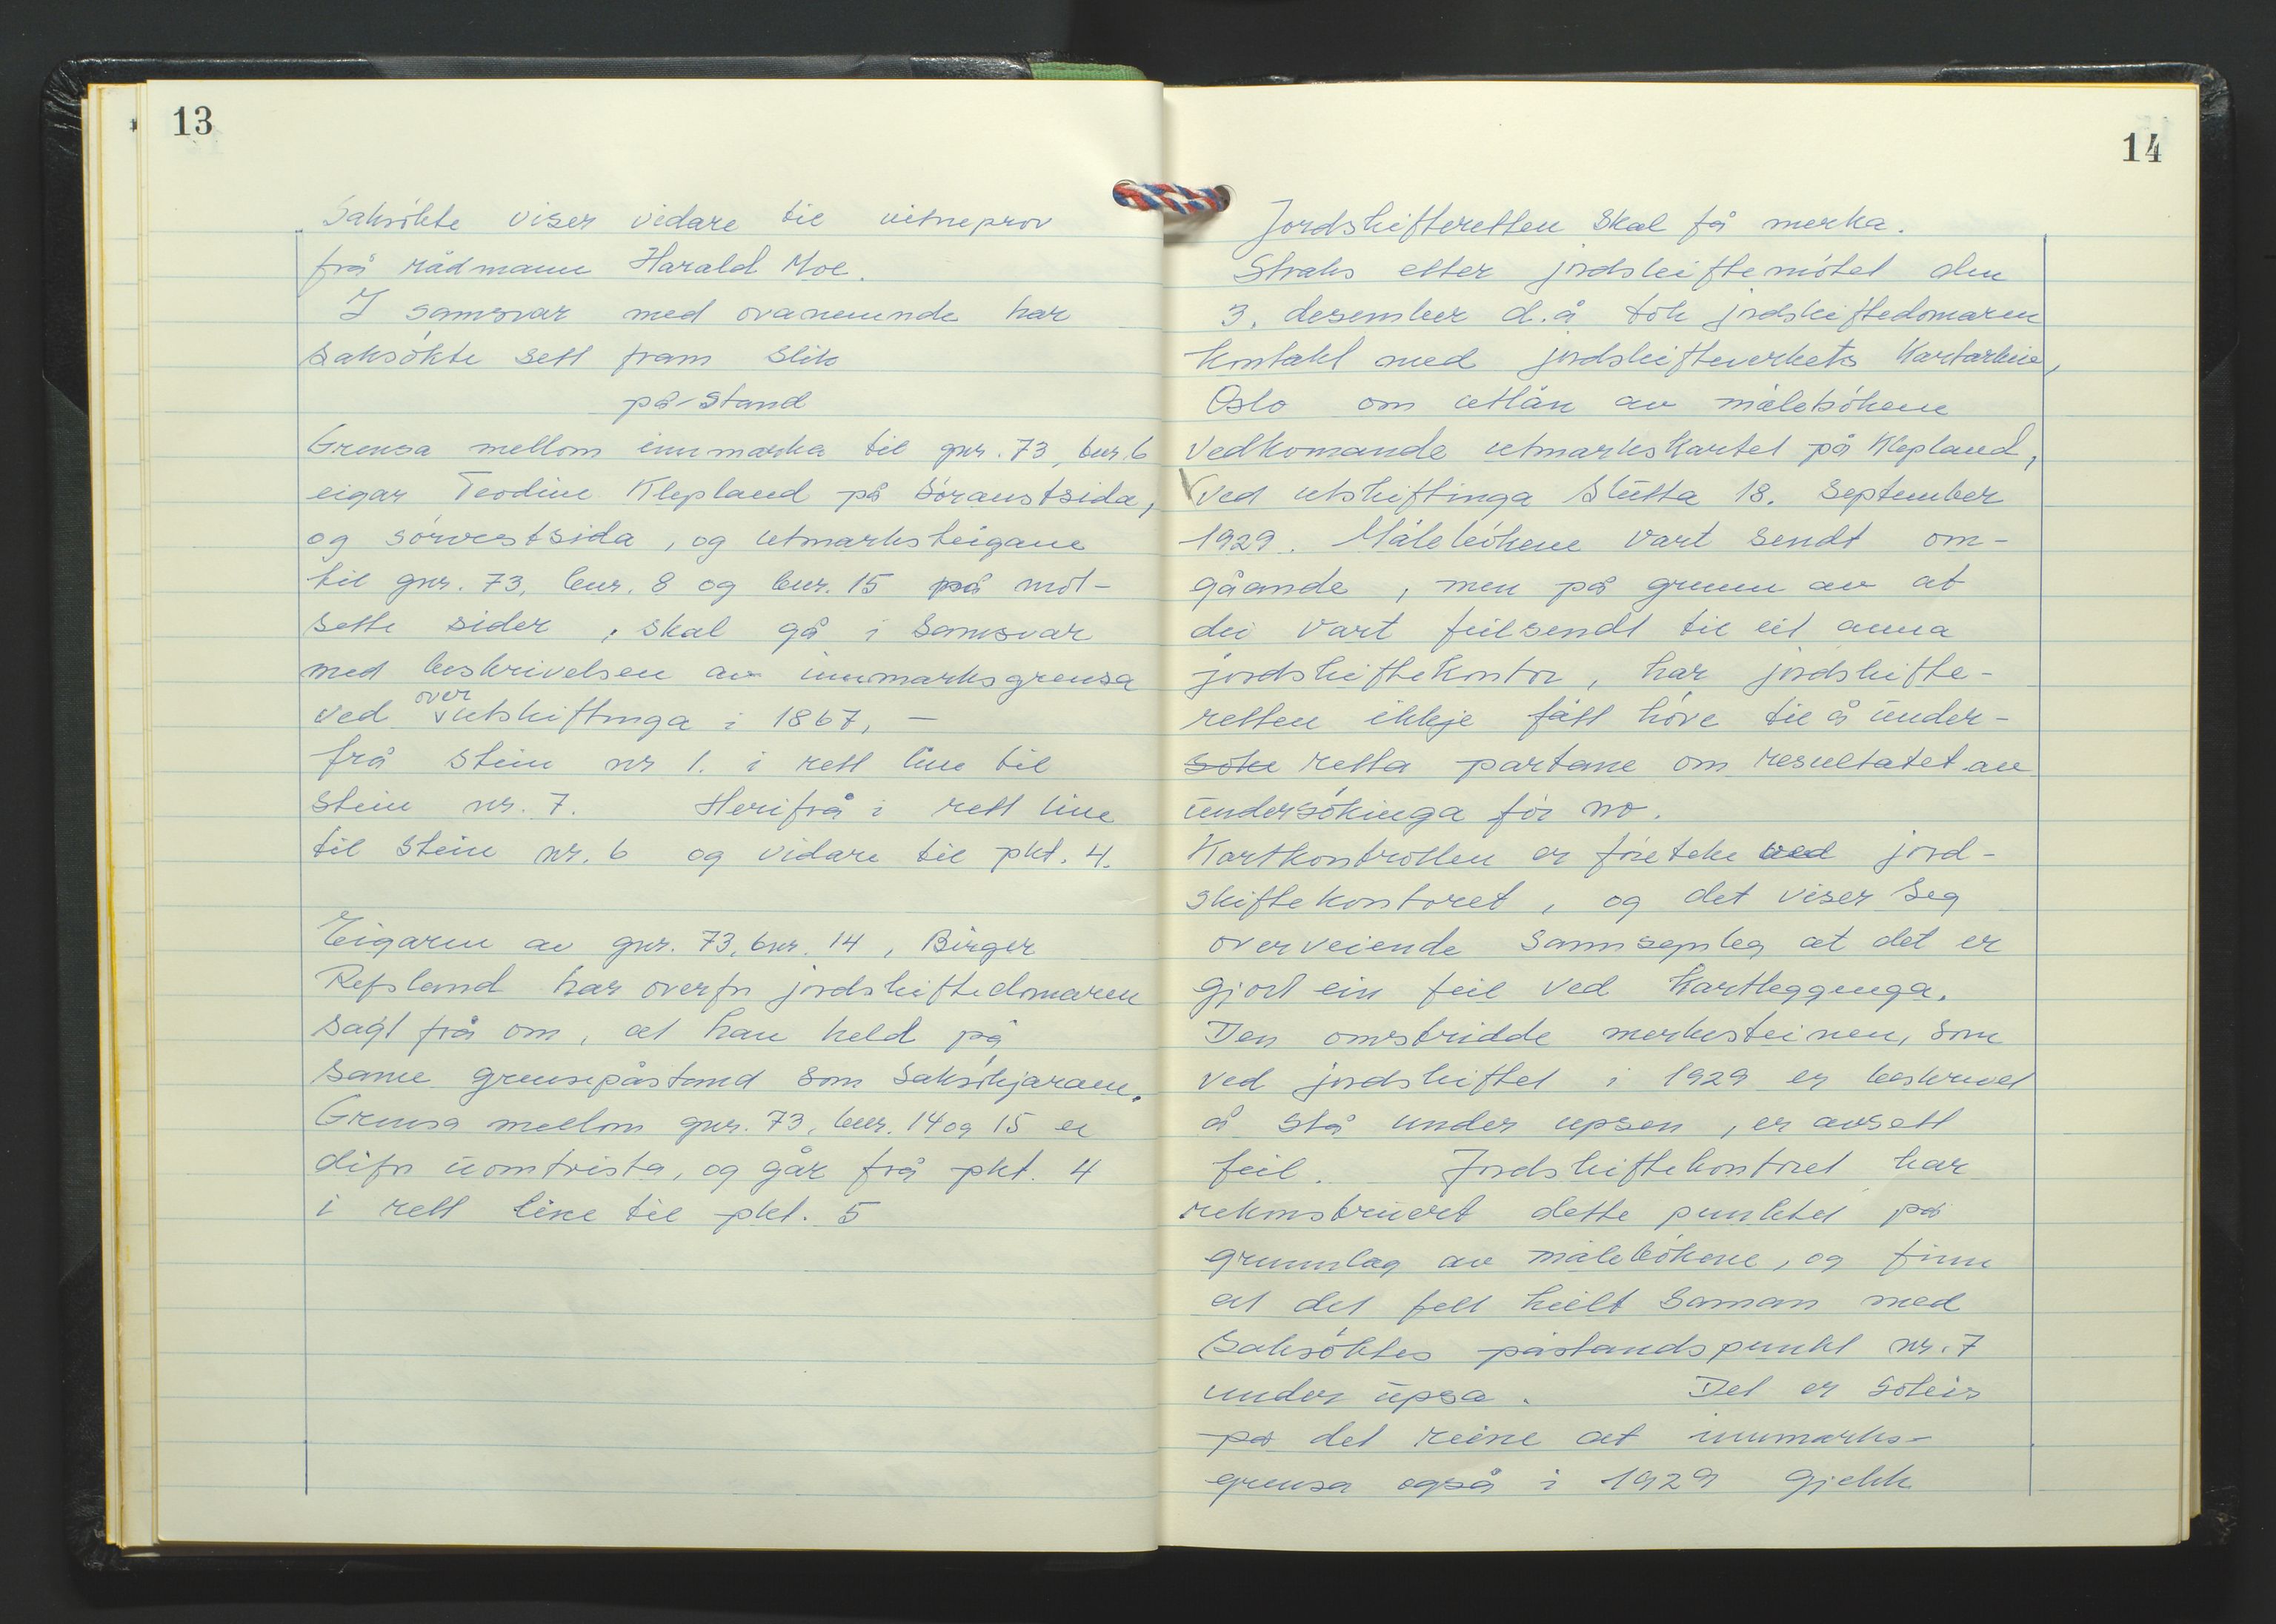 13
Saksökte viser vidare til vitneprov
frå rådmann Harald Moe.
I samsvar med ovanemnde har
saksökte sett fram slik
på-stand
Grensa mellom innmarka til gnr. 73, bnr. 6
eigar Teodine Klepland på söraustsida,
og sörvestsida, og utmarksteigane
til gnr. 73, bnr. 8 og bnr. 15 på mot-
sette sider, skal gå i samsvar
med beskrivelsen av innmarksgrensa
over
ved utskiftinga i 1867, —
frå stein nr 1. i rett line til
stein nr. 7. Herifrå i rett line
til stein nr. 6 og vidare til pkt. 4.
Eigaren av gnr. 73, bnr. 14, Birger
Refsland har overfor jordskiftedomaren
sagt frå om, at han held på
same grensepåstand som saksökjarane.
Grensa mellom gnr. 73, bnr. 14 og 15 er
difor uomtvista, og går frå pkt. 4
i rett line til pkt. 5
14
Jordskifteretten skal få merka.
Straks etter jordskiftemötet den
3. desember d.å tok jordskiftedomaren
kontakt med jordskifteverkets Kartarkiv,
Oslo om utlån av målebökene
vedkomande utmarkskartet på Klepland,
Ved utskiftinga slutta 18. september
1929. Målebökene vart sendt om-
gåande, men på grunn av at
dei vart feilsendt til eit anna
jordskiftekontor, har jordskifte-
retten ikkje fått höve til å under-
söke retta partane om resultatet av
undersökinga för no.
Kartkontrollen er företeke ved jord-
skiftekontoret, og det viser seg
overveiende sannsynleg at det er
gjort ein feil ved kartlegginga.
Den omstridde merkesteinen, som
ved jordskiftet i 1929 er beskrivel
å stå under upsen, er avsett
feil. Jordskiftekontoret har
rekonstruert dette punktet på
grunnlag av målebökene, og finn
at det fell heilt saman med
Saksöktes påstandspunkt nr. 7
under upsa. Det er söleis
på det reine at innmarks-
grensa også i 1929 gjekk